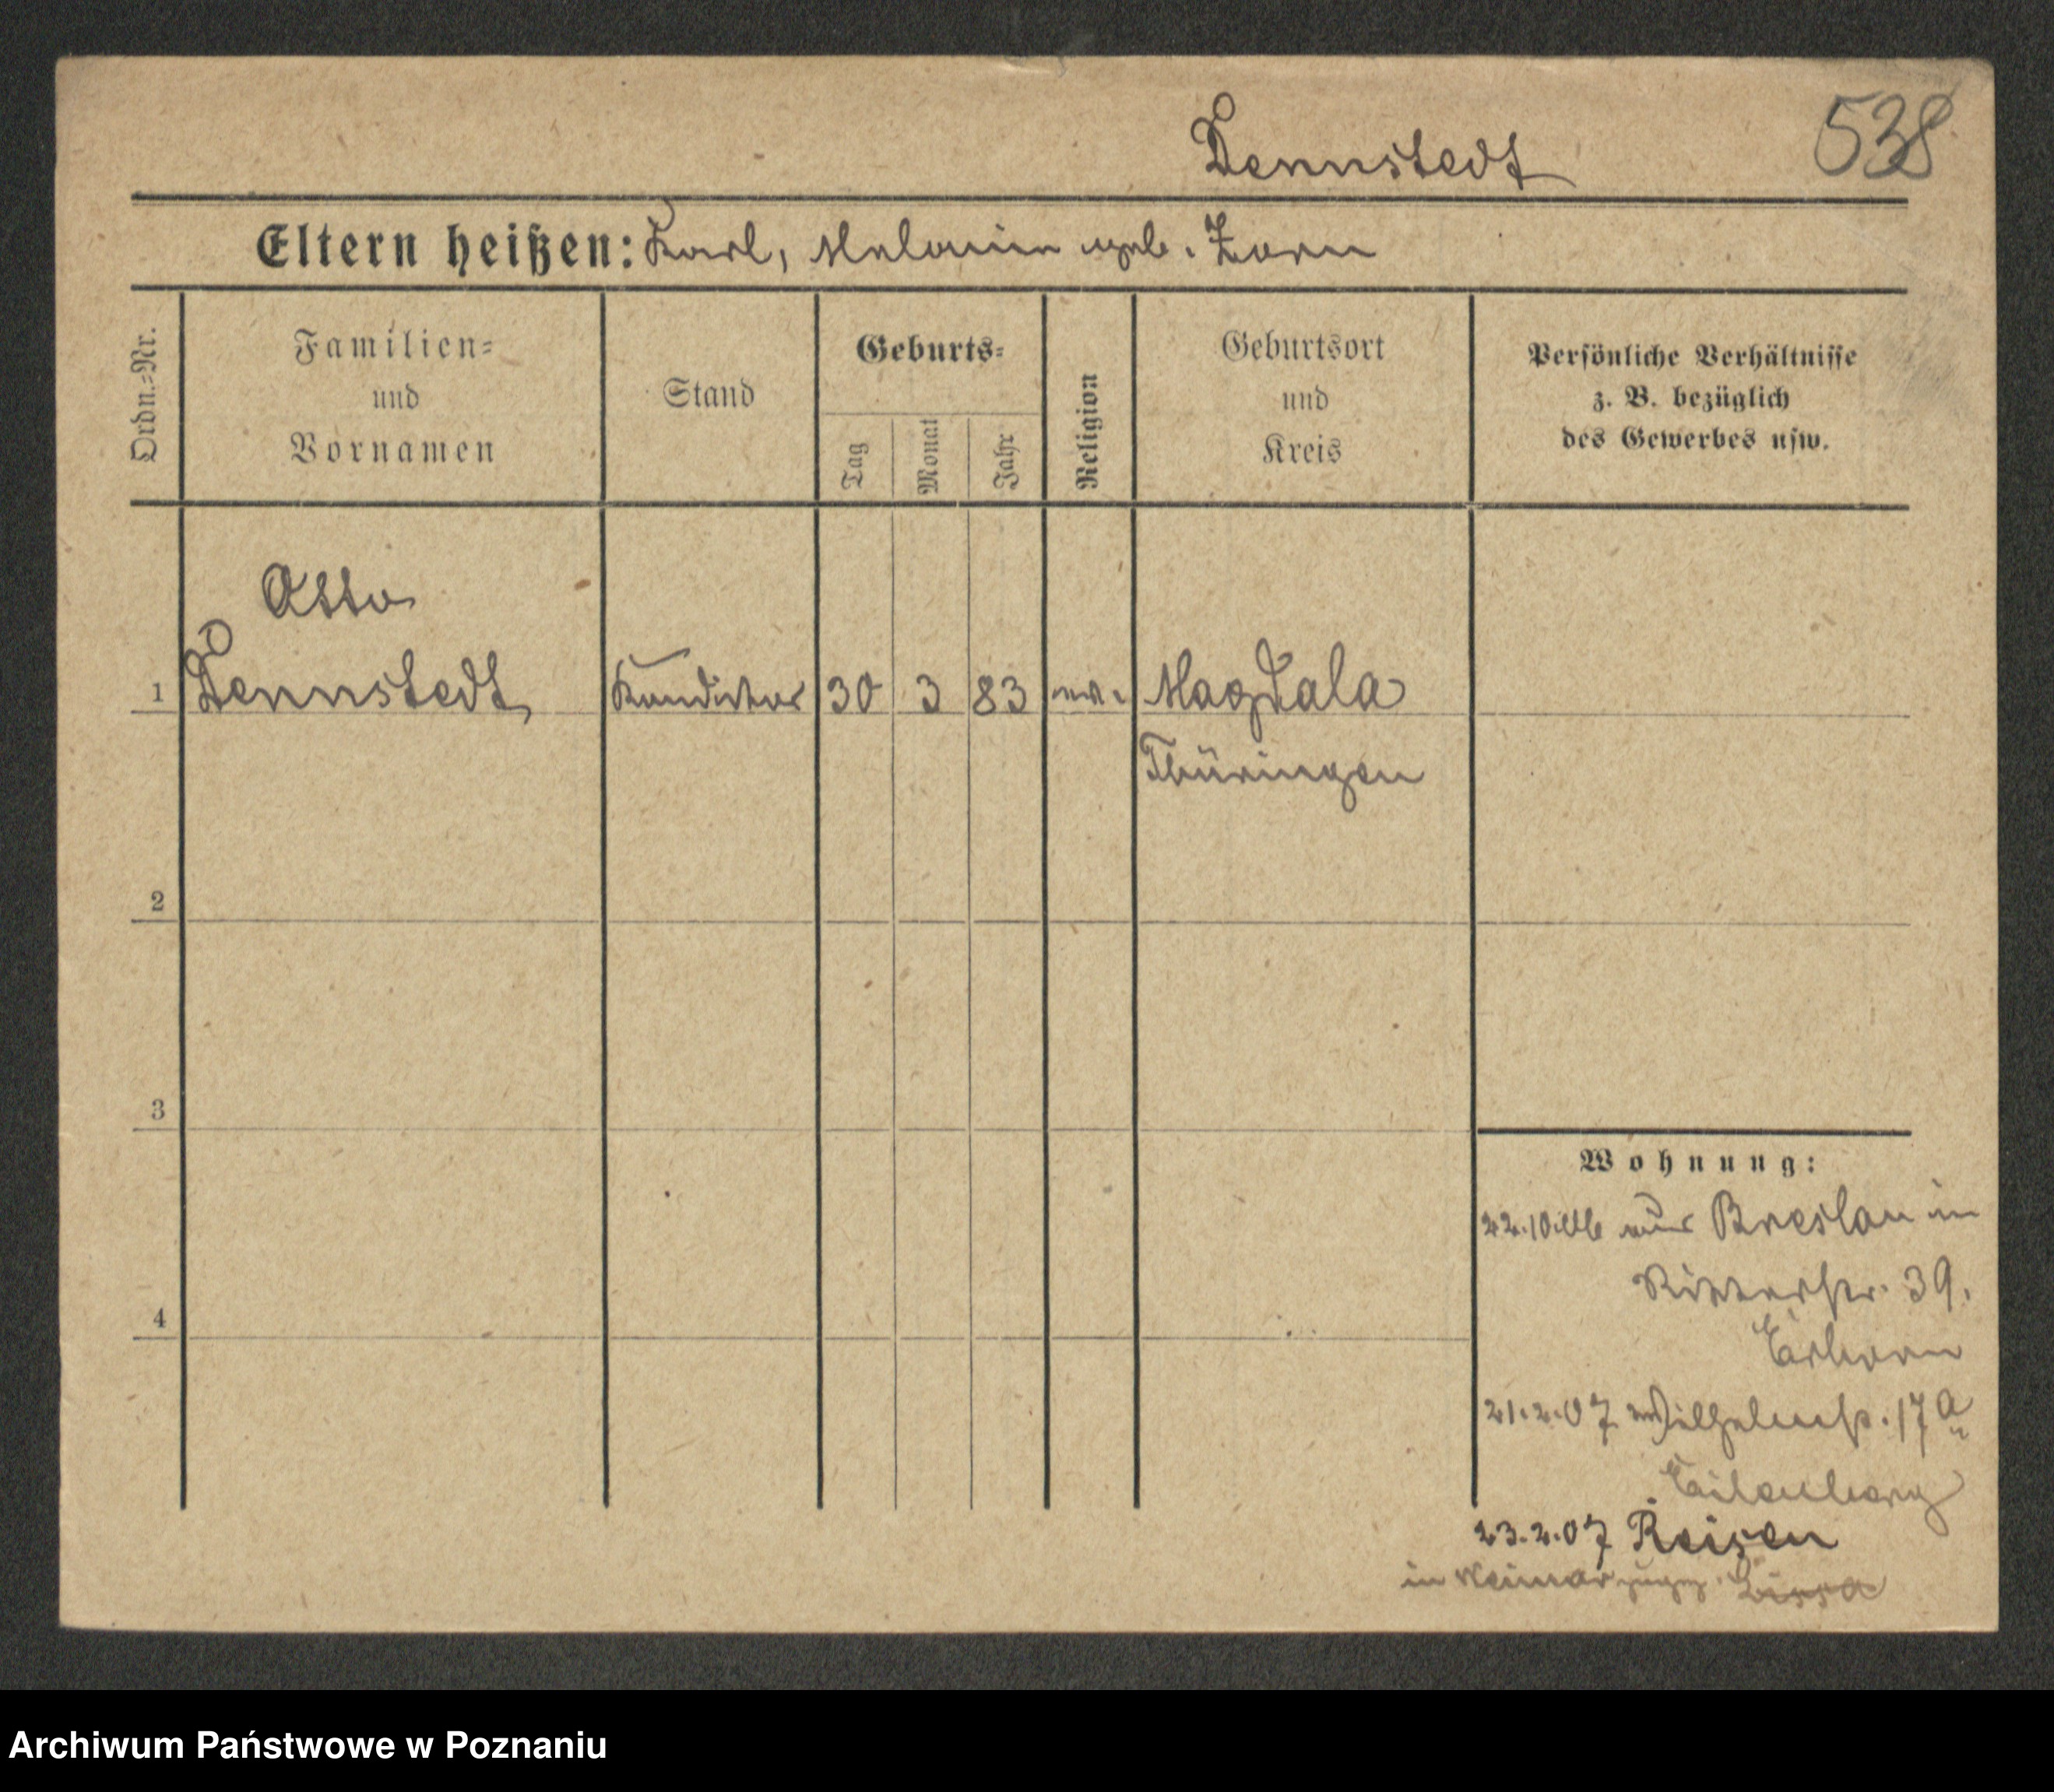 538
Dennstedt
Eltern heißen: Karl, Melanie geb. Zorn
Ordn.=Nr.
Familien=
und
Vornamen
Stand
Geburts=
Tag
Monat
Jahr
Religion
Geburtsort
und
Kreis
Persönliche Verhältnisse
z. B. bezüglich
des Gewerbes usw.
Otto
1 Dennstedt Konditor 30 3 83 ev. Magdala
Thüringen
2
3
4
Wohnung:
22.10.06 aus Breslau in
Ritterstr. 39.
21.2.07 Wilhelmstr. 17a
23.2.07 Reisen
in Weimar zugez. Lissa
Archiwum Państwowe w Poznaniu